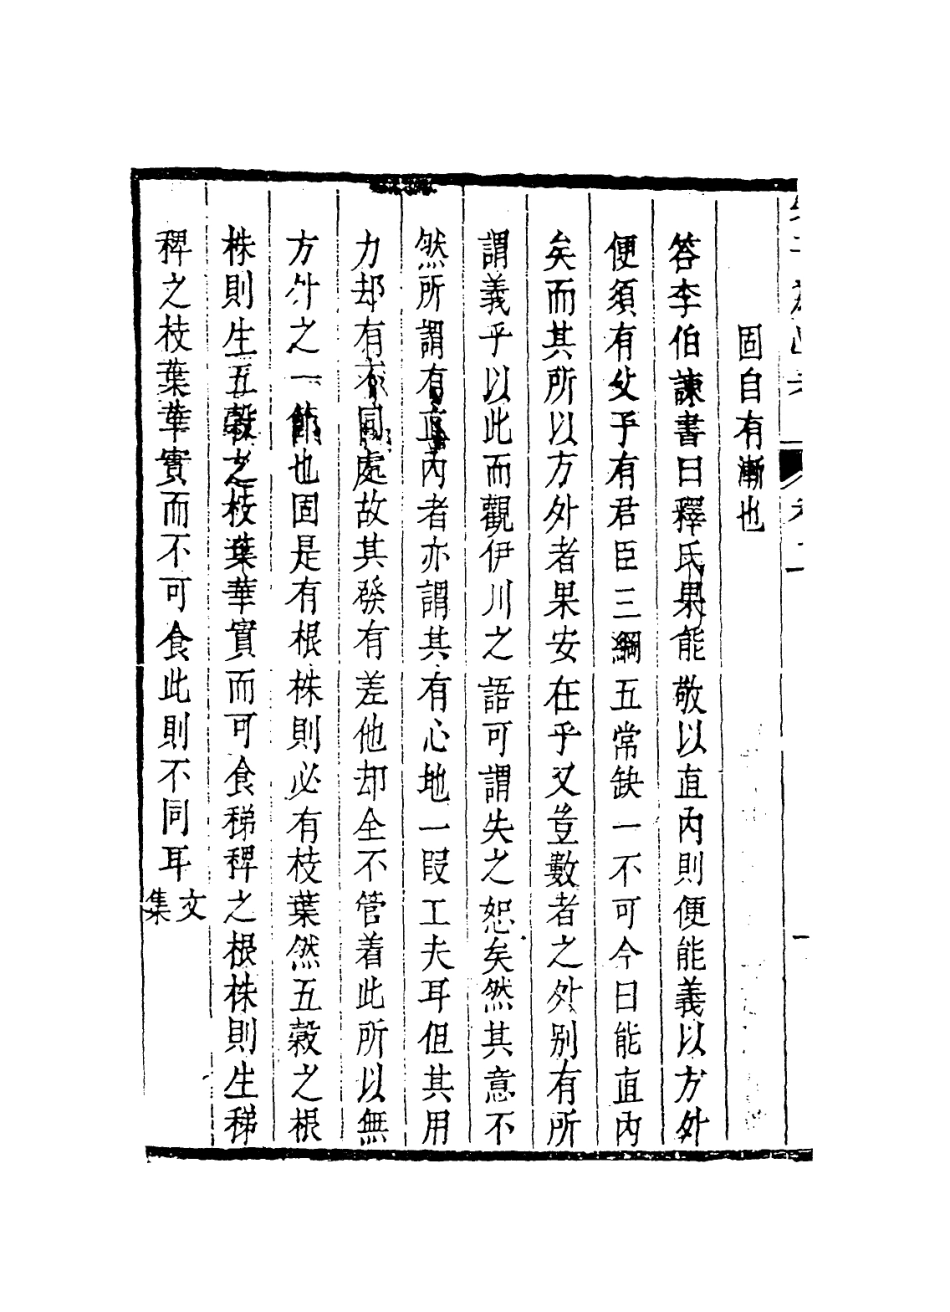 固自有漸也
答李伯諫書曰釋氏果能敬以直內則便能義以方外
便須有父子有君臣三綱五常缺一不可今曰能直內
矣而其所以方外者果安在乎又豈數者之外別有所
謂義乎以此而觀伊川之語可謂失之恕矣然其意不
然所謂有直內者亦謂其有心地一段工夫耳但其用
力却有不同處故其發有差他却全不管着此所以無
方外之一節也固是有根株則必有枝葉然五穀之根
株則生五穀之枝葉華實而可食稊稗之根株則生稊
稗之枝葉華實而不可食此則不同耳文集